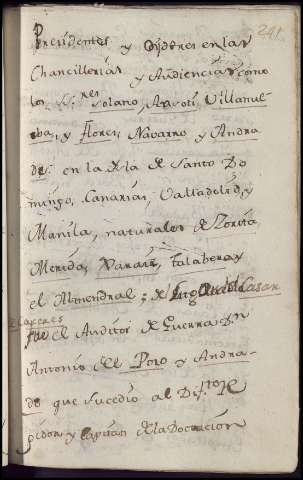 241
Presidentes y Oydores en las
Chancillerias y Audiencias, como
los S.res Solano, Villanue-
ba, y Flores, Navarro y Andra
de: en la Isla de Santo Do
mingo, Canarias, Valladolid, y
Manila, naturales de Zorita,
Merida, Talabera y
el Almendral; de Casar
de Caceres
fue el Auditor de Guerra Dn
Antonio del Pozo y Andra-
de que sucedio al
y Capitan de la